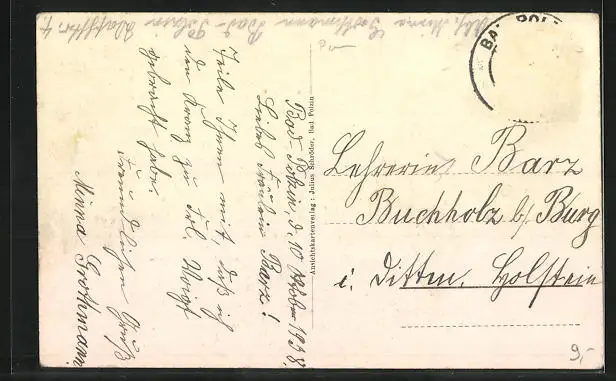 Abs. Minna Grothmann Bad-Polzin
Bad-Polzin, d. 10. Oktober 1938.
Liebes Fräulein Barz!
Teile Ihnen mit, daß ich
den Kranz zu Frl. Voigt
gebracht habe.
Freundlichen Gruß
Minna Grothmann.
Ansichtskartenverlag: Julius Schröder, Bad Polzin
BAD POLZ
Lehrerin Barz
Buchholz b/ Burg
i. Dittm. Holstein
9,-